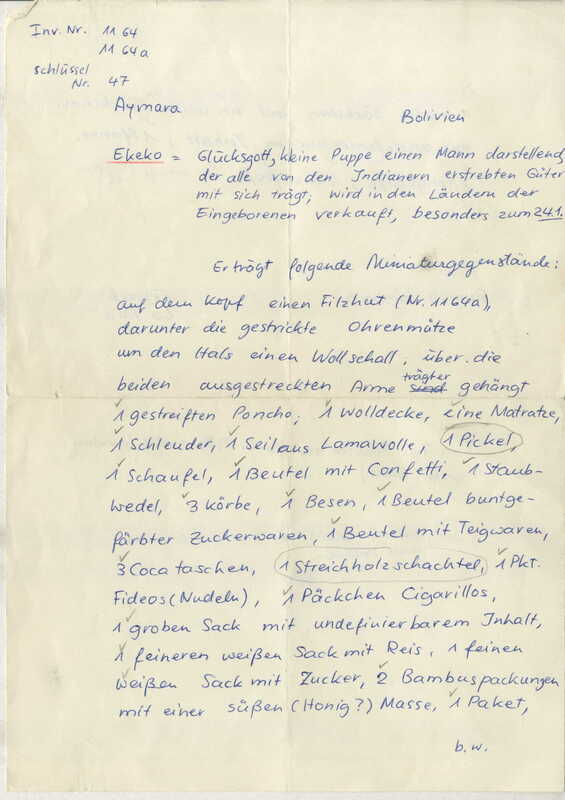 Inv. Nr. 1164
1164a
Schlüssel
Nr. 47
Aymara
Bolivien
Ekeko = Glücksgott, kleine Puppe einen Mann darstellend,
der alle von den Indianern erstrebten Güter
mit sich trägt, wird in den Ländern der
Eingeborenen verkauft, besonders zum 24.1.
Er trägt folgende Miniaturgegenstände:
auf dem Kopf einen Filzhut (Nr. 1164a),
darunter die gestrickte Ohrenmütze
um den Hals einen Wollschall, über die
beiden ausgestreckten Arme trägter sind gehängt
1 gestreiften Poncho, 1 Wolldecke, eine Matratze,
1 Schleuder, 1 Seil aus Lamawolle, 1 Pickel,
1 Schaufel, 1 Beutel mit Confetti, 1 Staub-
wedel, 3 Körbe, 1 Besen, 1 Beutel buntge-
färbter Zuckerwaren, 1 Beutel mit Teigwaren,
3 Cocataschen, 1 Streichholzschachtel, 1 Pkt.
Fideos (Nudeln), 1 Päckchen Cigarillos,
1 groben Sack mit undefinierbarem Inhalt,
1 feineren weißen Sack mit Reis, 1 feinen
weißen Sack mit Zucker, 2 Bambuspackungen
mit einer süßen (Honig?) Masse, 1 Paket,
b.w.